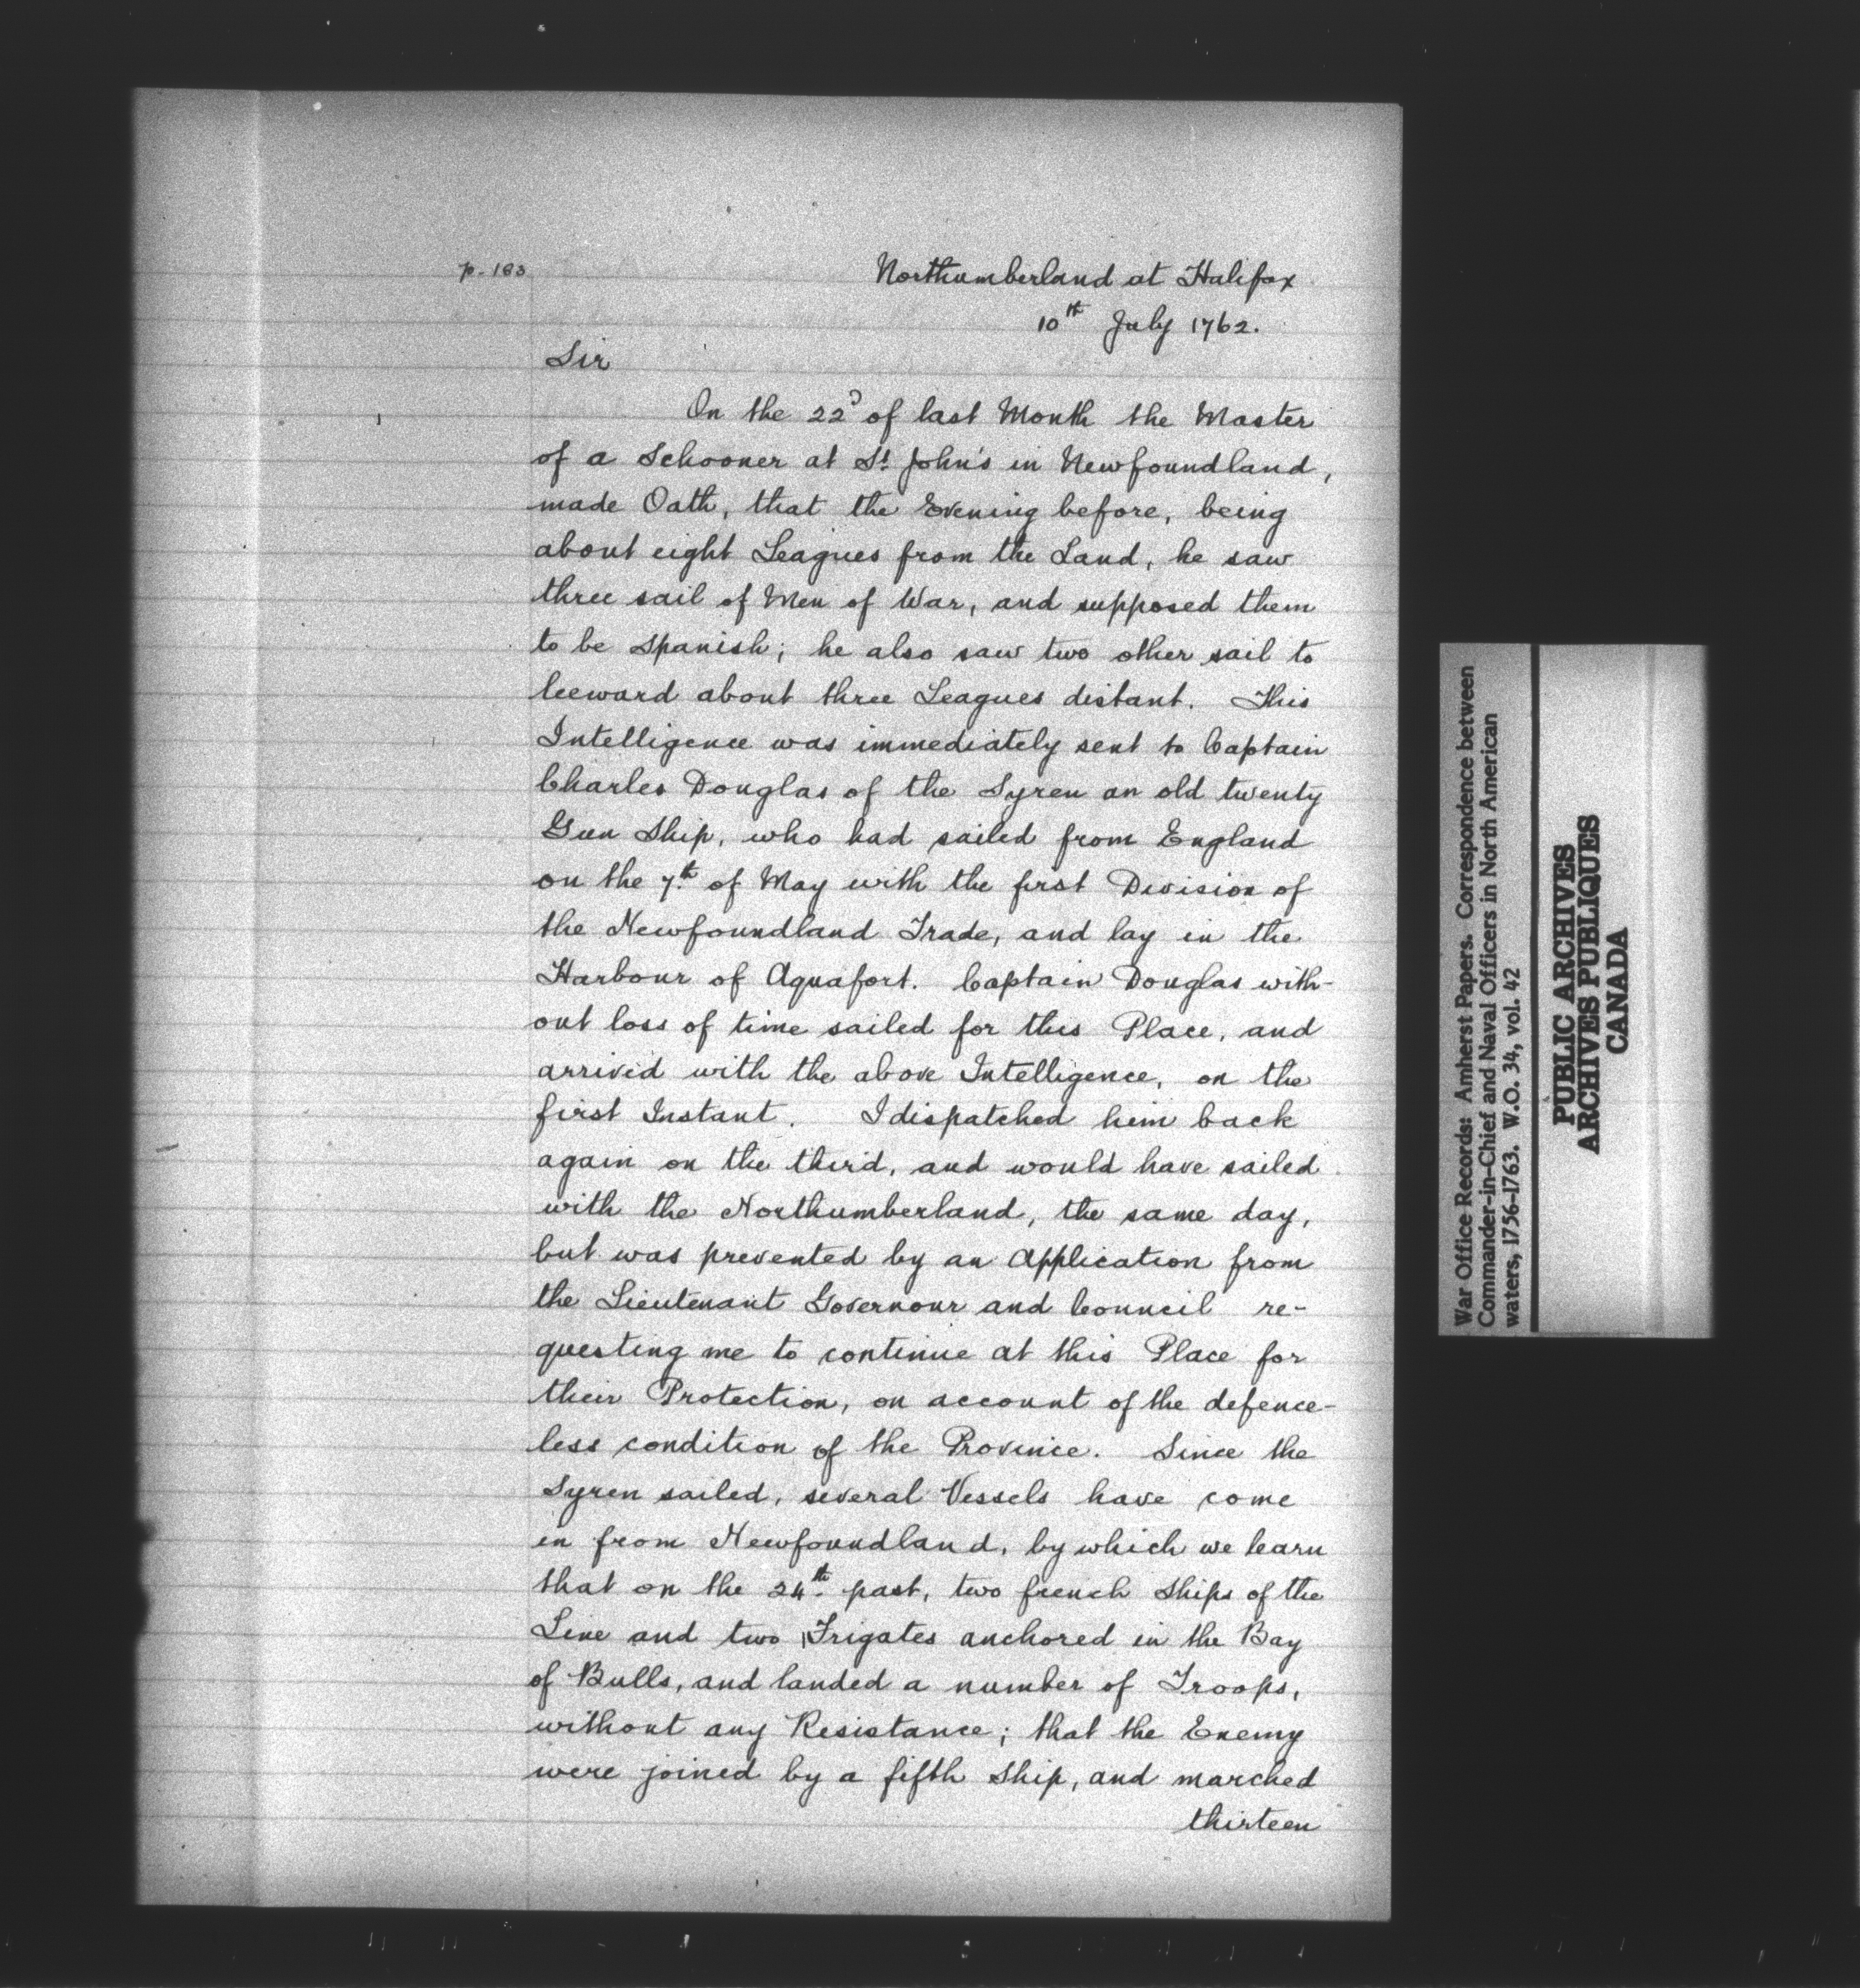 p-183
Northumberland at Halifax
10th July 1762.
Sir
On the 22d of last Month the Master
of a Schooner at St. John's in Newfoundland,
made Oath, that the Evening before, being
about eight Leagues from the Land, he saw
three sail of Men of War, and supposed them
to be Spanish; he also saw two other sail to
leeward about three Leagues distant. This
Intelligence was immediately sent to Captain
Charles Douglas of the Syren an old twenty
Gun Ship, who had sailed from England
on the 7th of May with the first Division of
the Newfoundland Trade, and lay in the
Harbour of Aquafort. Captain Douglas with-
out loss of time sailed for this Place, and
arrived with the above Intelligence, on the
first Instant. I dispatched him back
again on the third, and would have sailed
with the Northumberland, the same day,
but was prevented by an Application from
the Lieutenant Governour and Council re-
questing me to continue at this Place for
their Protection, on account of the defence-
less condition of the Province. Since the
Syren sailed, several Vessels have come
in from Newfoundland, by which we learn
that on the 24th past, two french Ships of the
Line and two Frigates anchored in the Bay
of Bulls, and landed a number of Troops,
without any Resistance; that the Enemy
were joined by a fifth Ship, and marched
thirteen
War Office Records: Amherst Papers. Correspondence between
Commander-in-Chief and Naval Officers in North American
waters, 1756-1763. W.O. 34, vol. 42
PUBLIC ARCHIVES
ARCHIVES PUBLIQUES
CANADA